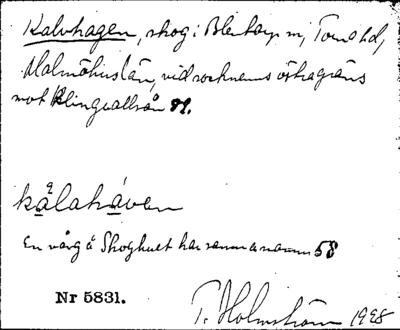 Kalvhagen, skog i Blentarp sn, Torna hd,
Malmöhus län, vid socknens östra gräns
mot Klingvallsån 91.
kålaháven
En vång å Skoghuset har samma namn 58
Nr 5831.
T. Holmström 1928